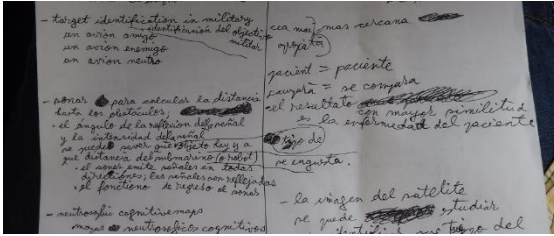 - target identification in military
un avión amigo - identificación del objetivo
un avión enemigo militar
un avión neutro
- sonar para calcular la distancia
hasta los obstáculos;
• el ángulo de la reflexión del señal
y la intensidad del señal
se puede prever que objeto hay y a
que distancia del submarino (o robot)
• el sonar emite señales en todas
directiones; las señales son reflejadas
• el de regreso al sonar
- neutrosophic cognitive maps
mapas neutroseficos cognitivos
mas cercana
pacient = paciente
= se compara
• el resultato con mayor similitud
es la enfermedad del paciente
tipo de
se engusta.
- la imagen del satelite
se puede estudiar
del